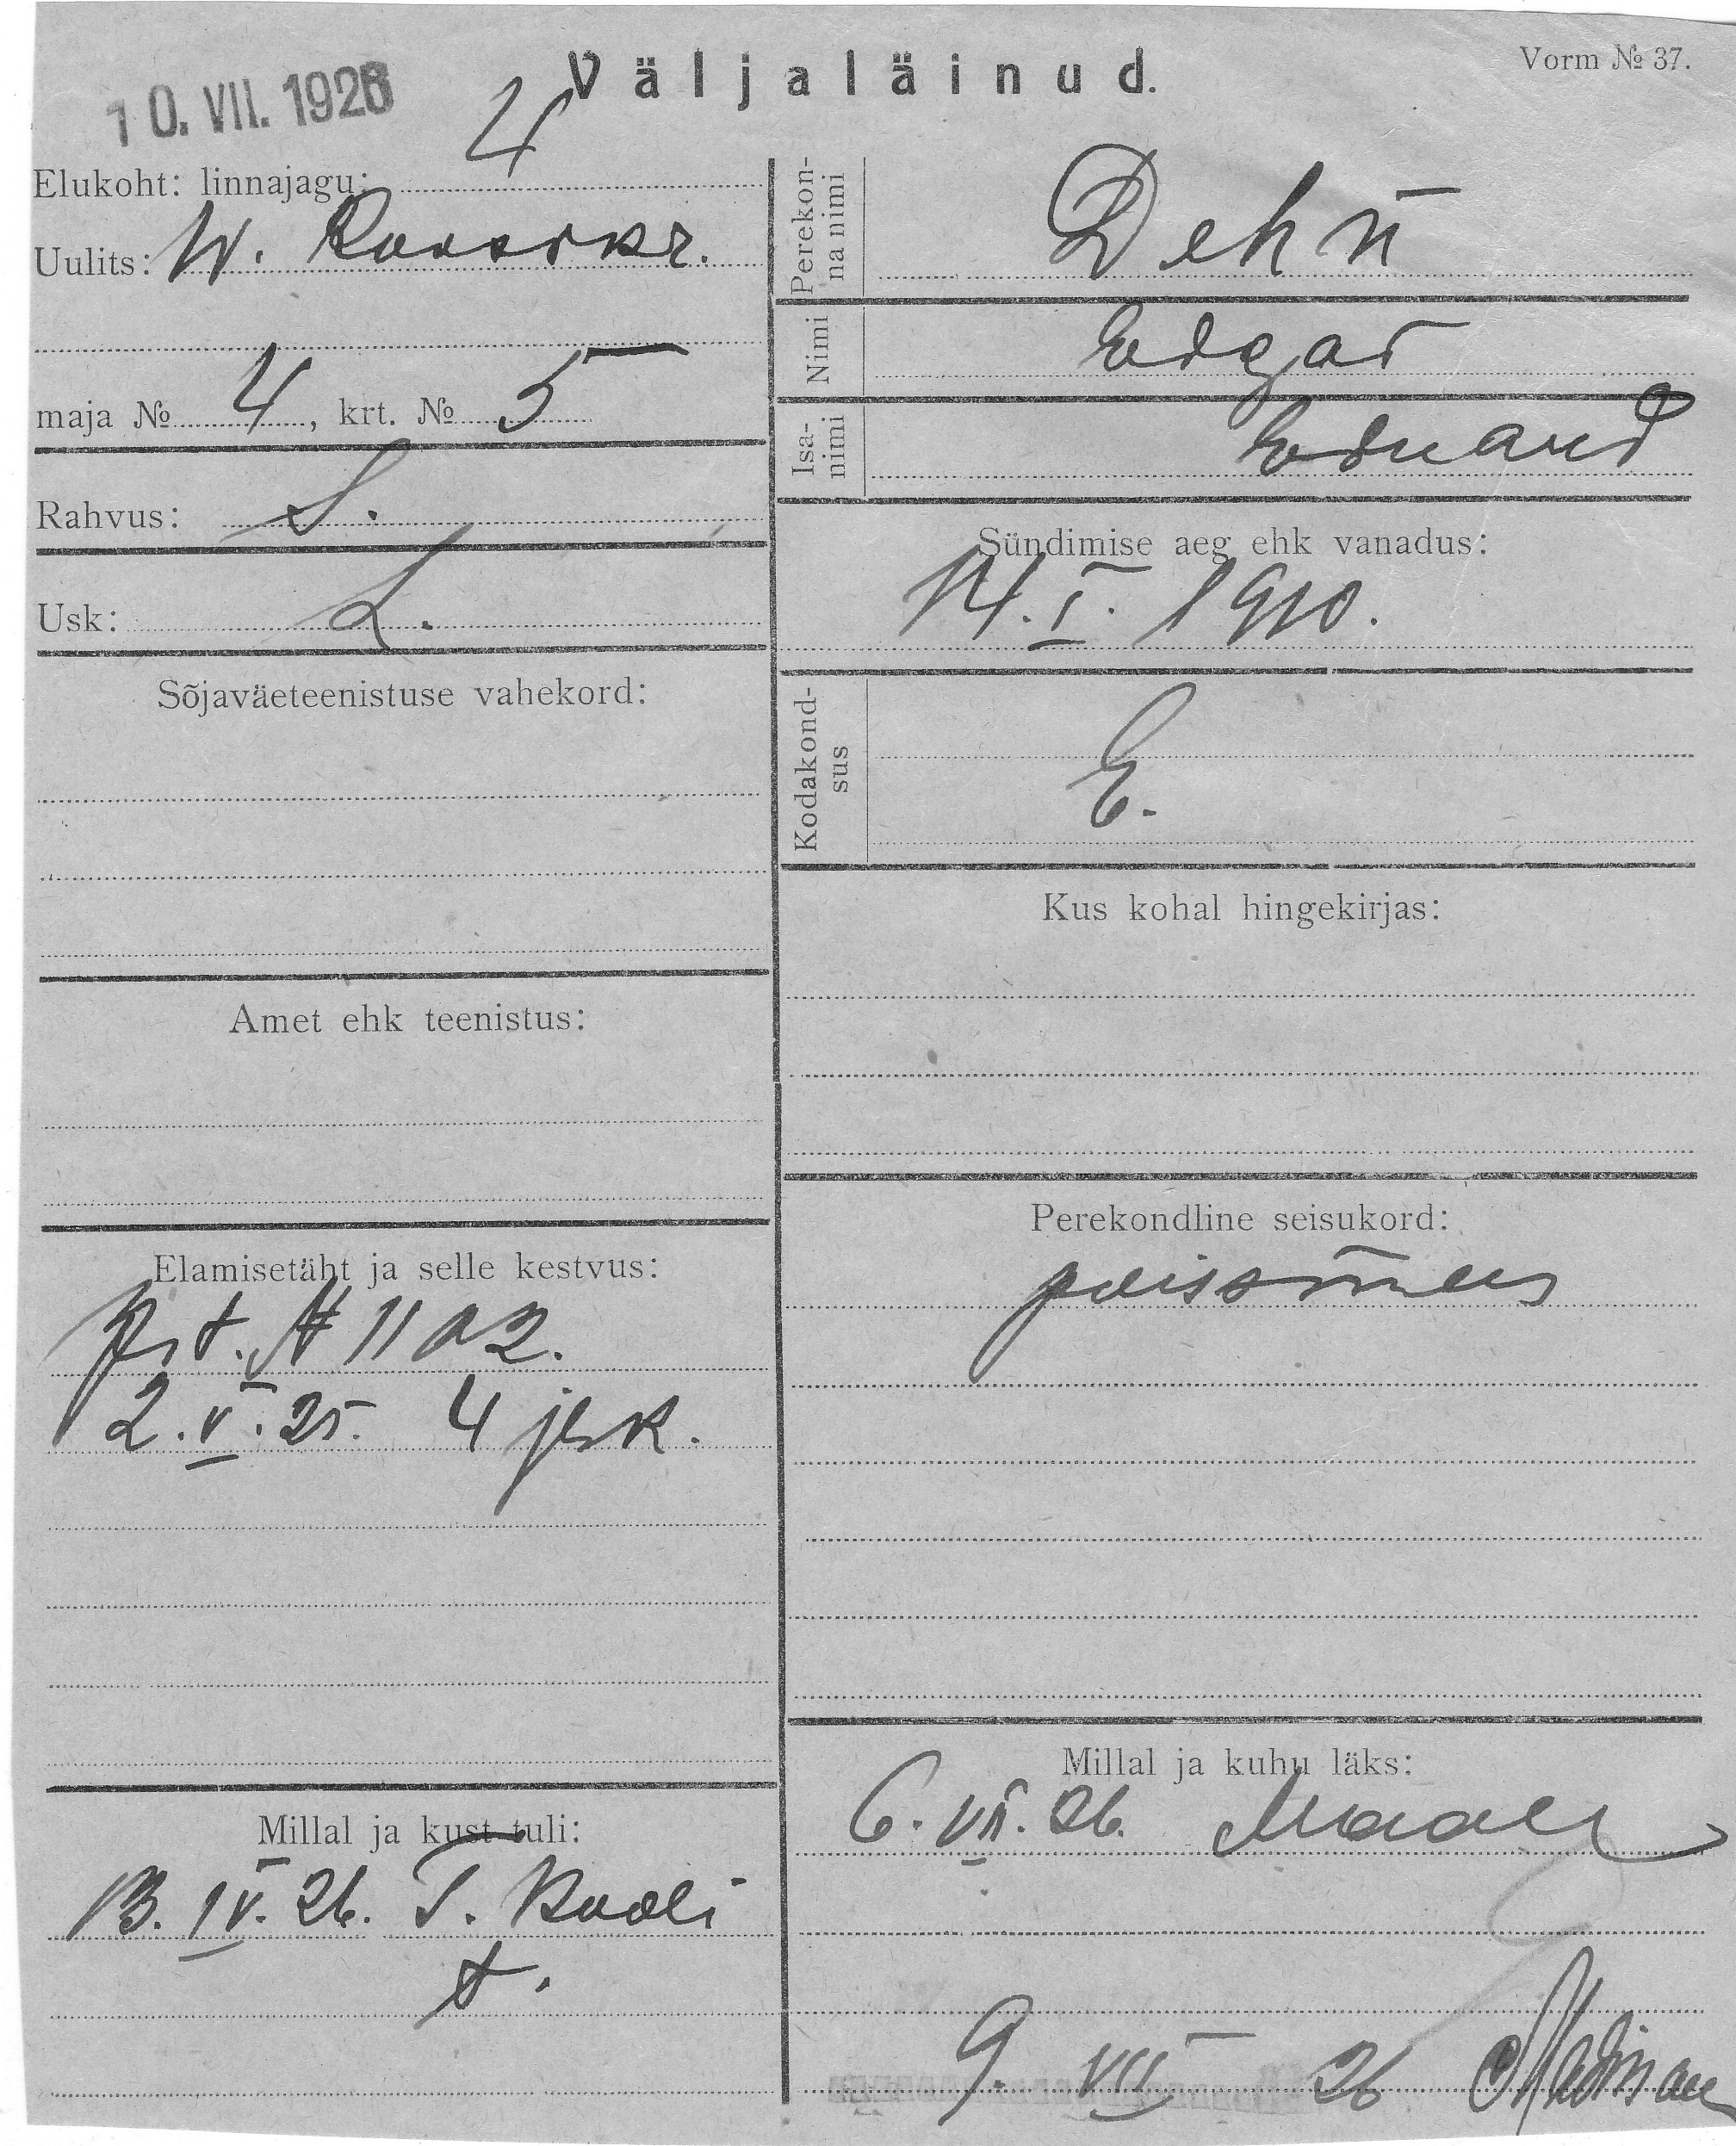 10. VII. 1926
Väljaläinud.
Vorm № 37.
Elukoht: linnajagu: 4
Uulits: W. Roosikr.
maja № 4, krt. № 5
Rahvus: S.
Usk: L.
Sõjaväeteenistuse vahekord:
Amet ehk teenistus:
Elamisetäht ja selle kestvus:
№ 1102.
2.V.25. 4 jsk.
Millal ja kust tuli:
13. IV. 26. T. Kooli
t.
Perekon-
na nimi
Dehn
Nimi Edgar
Isa-
nimi
Eduard
Sündimise aeg ehk vanadus:
14. I. 1910.
Kodakond-
sus
E.
Kus kohal hingekirjas:
Perekondline seisukord:
poissmees
Millal ja kuhu läks:
6. VII. 26. Maale
9. VII 26